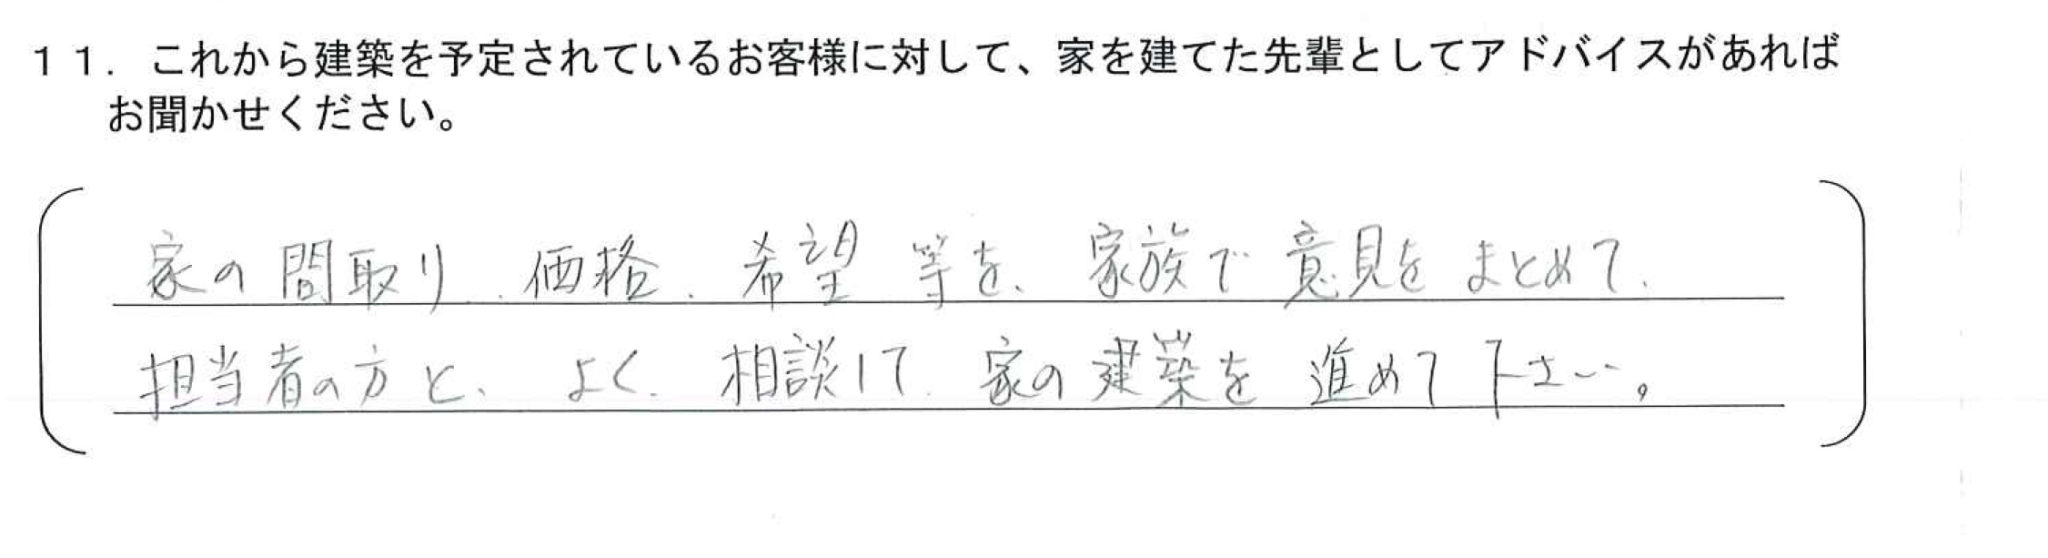 11．これから建築を予定されているお客様に対して、家を建てた先輩としてアドバイスがあれば
お聞かせください。
家の間取り、価格、希望等を、家族で意見をまとめて、
担当者の方と、よく、相談して、家の建築を進めて下さい。